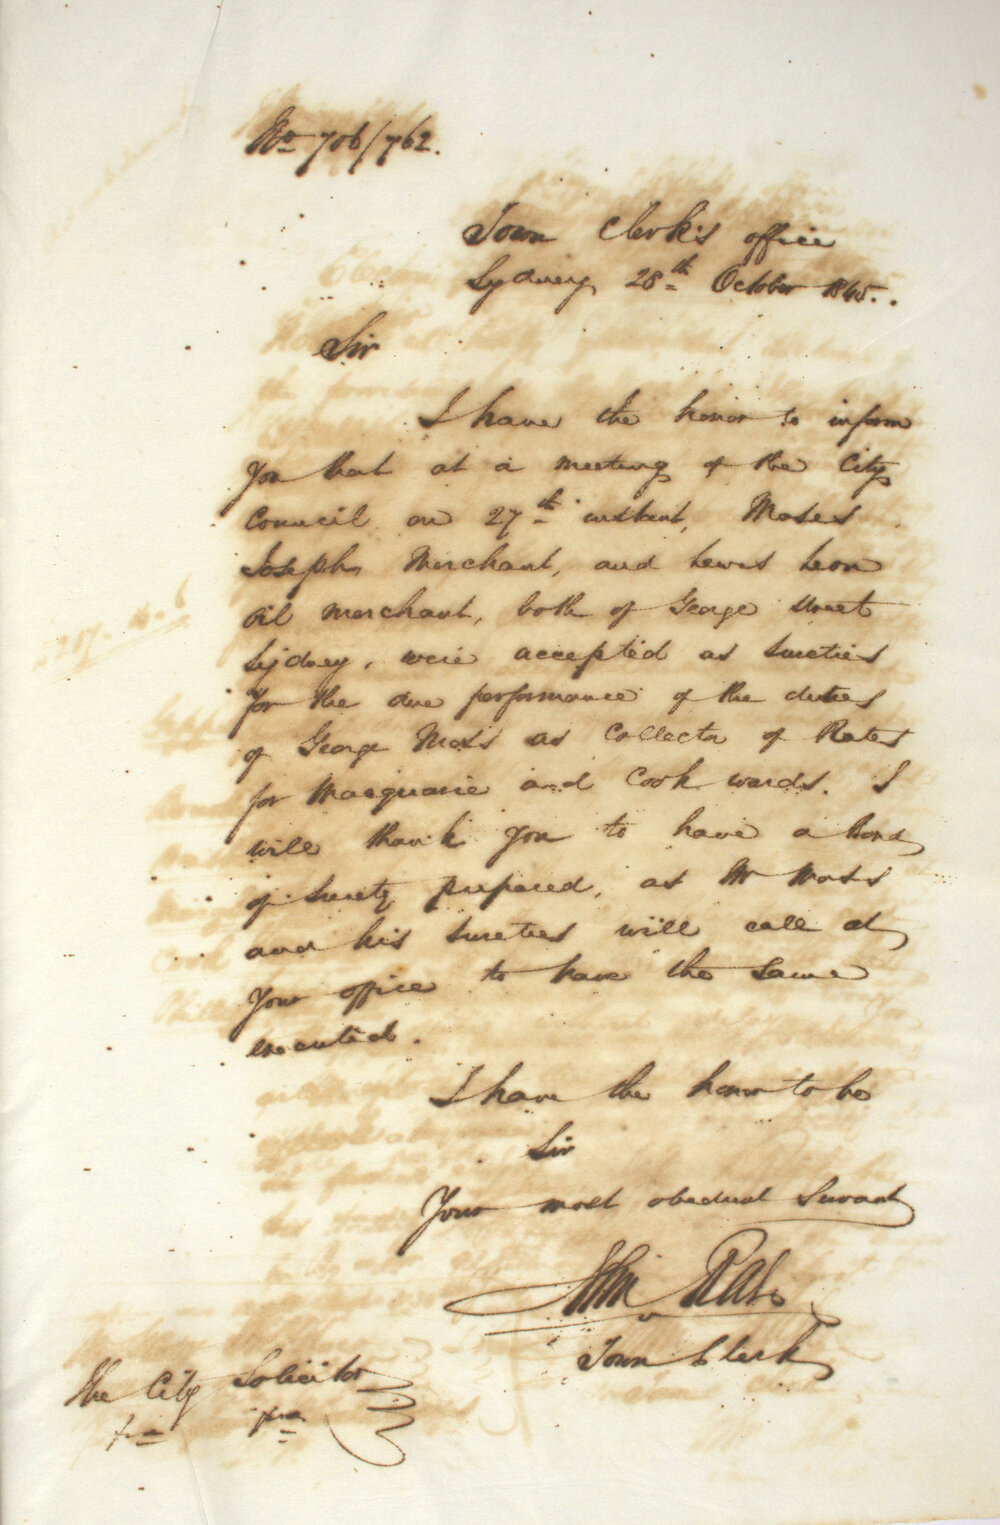 No 706/762.
Town Clerk's office
Sydney 28th October 1845.
Sir
I have the honor to inform
you that at a meeting of the City
Council on 27th instant, Moses
Joseph Merchant, and Lewis Leon
oil merchant, both of George street
Sydney, were accepted as sureties
for the due performance of the duties
of George Moss as Collector of Rates
for Macquarie and Cook wards. I
will thank you to have a Bond
of surety prepared, as Mr Moss
and his sureties will call at
your office to have the same
executed.
I have the honor to be
Sir
Your most obedient Servant
John
Town Clerk
The City Solicitor